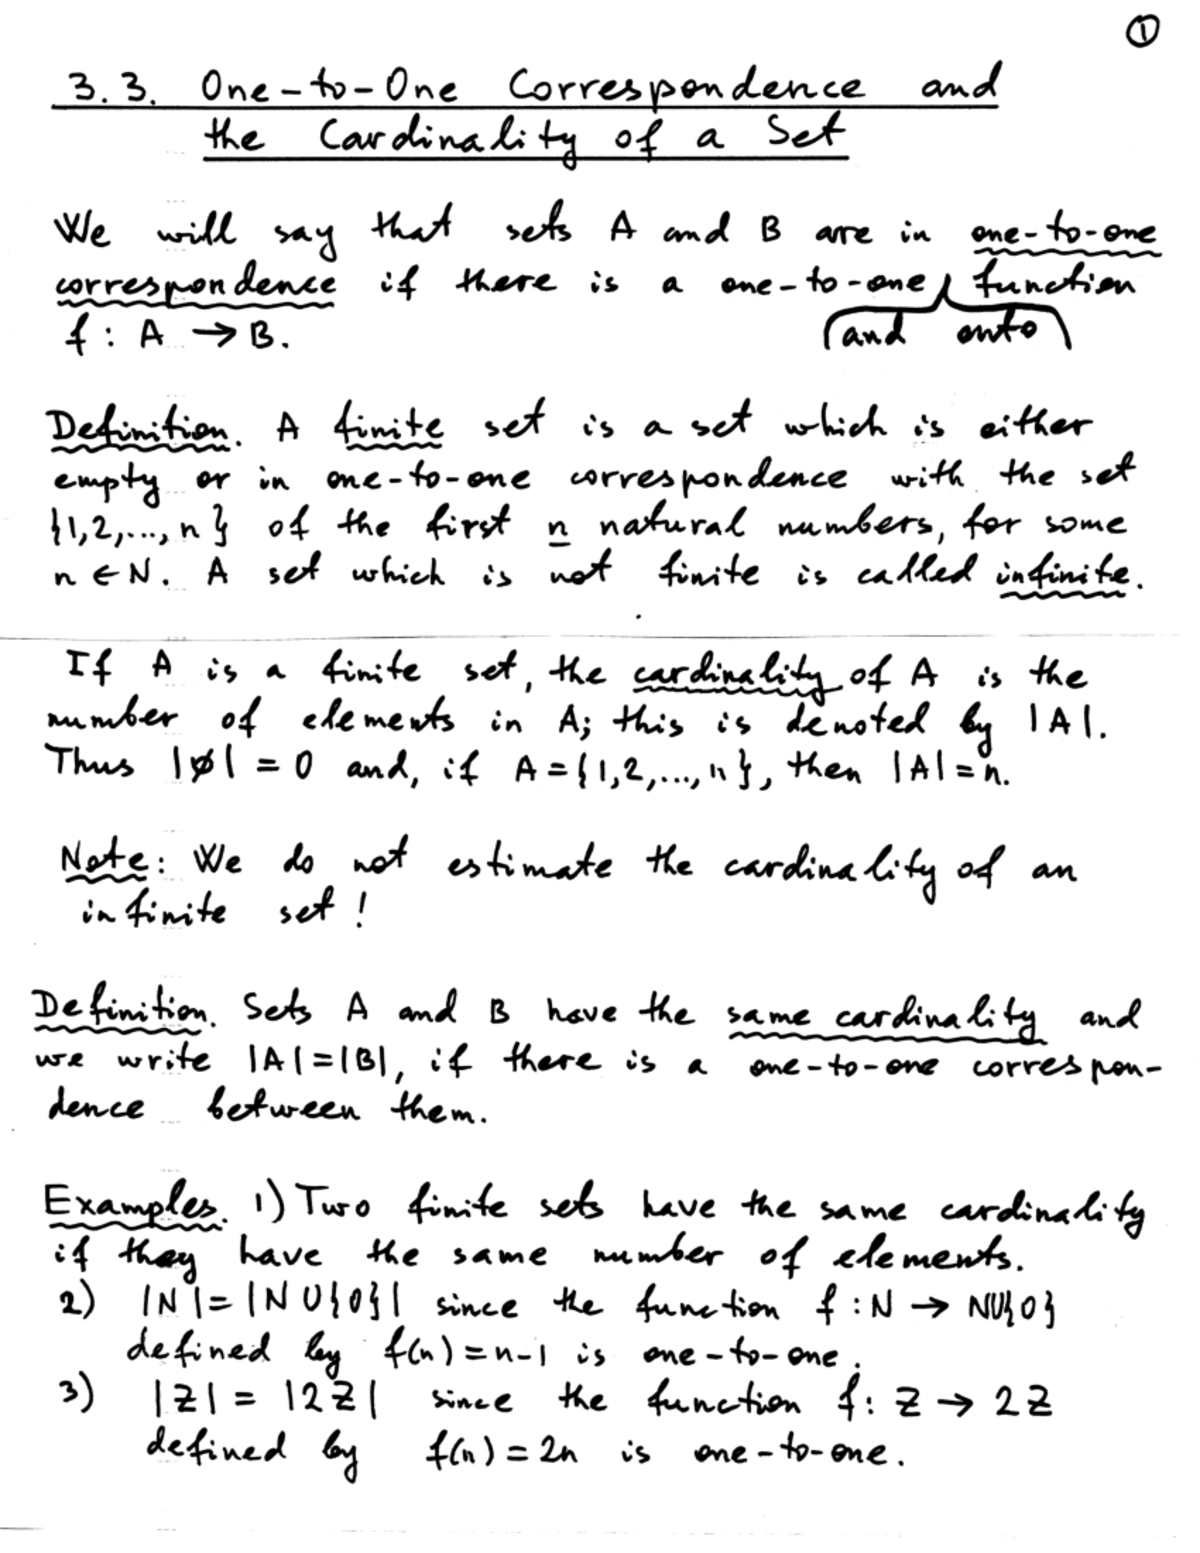 ①
3.3. One-to-One Correspondence and
the Cardinality of a Set
We will say that sets A and B are in one-to-one
correspondence if there is a one-to-one function
f : A → B. and onto
Definition. A finite set is a set which is either
empty or in one-to-one correspondence with the set
{1,2,..., n} of the first n natural numbers, for some
n ∈ N. A set which is not finite is called infinite.
If A is a finite set, the cardinality of A is the
number of elements in A; this is denoted by |A|.
Thus |∅| = 0 and, if A = {1,2,..., n}, then |A| = n.
Note: We do not estimate the cardinality of an
infinite set!
Definition. Sets A and B have the same cardinality and
we write |A|=|B|, if there is a one-to-one correspon-
dence between them.
Examples. 1) Two finite sets have the same cardinality
if they have the same number of elements.
2) |N| = |N∪{0}| since the function f : N → N∪{0}
defined by f(n) = n-1 is one-to-one.
3) |Z| = |2Z| since the function f: Z → 2Z
defined by f(n) = 2n is one-to-one.